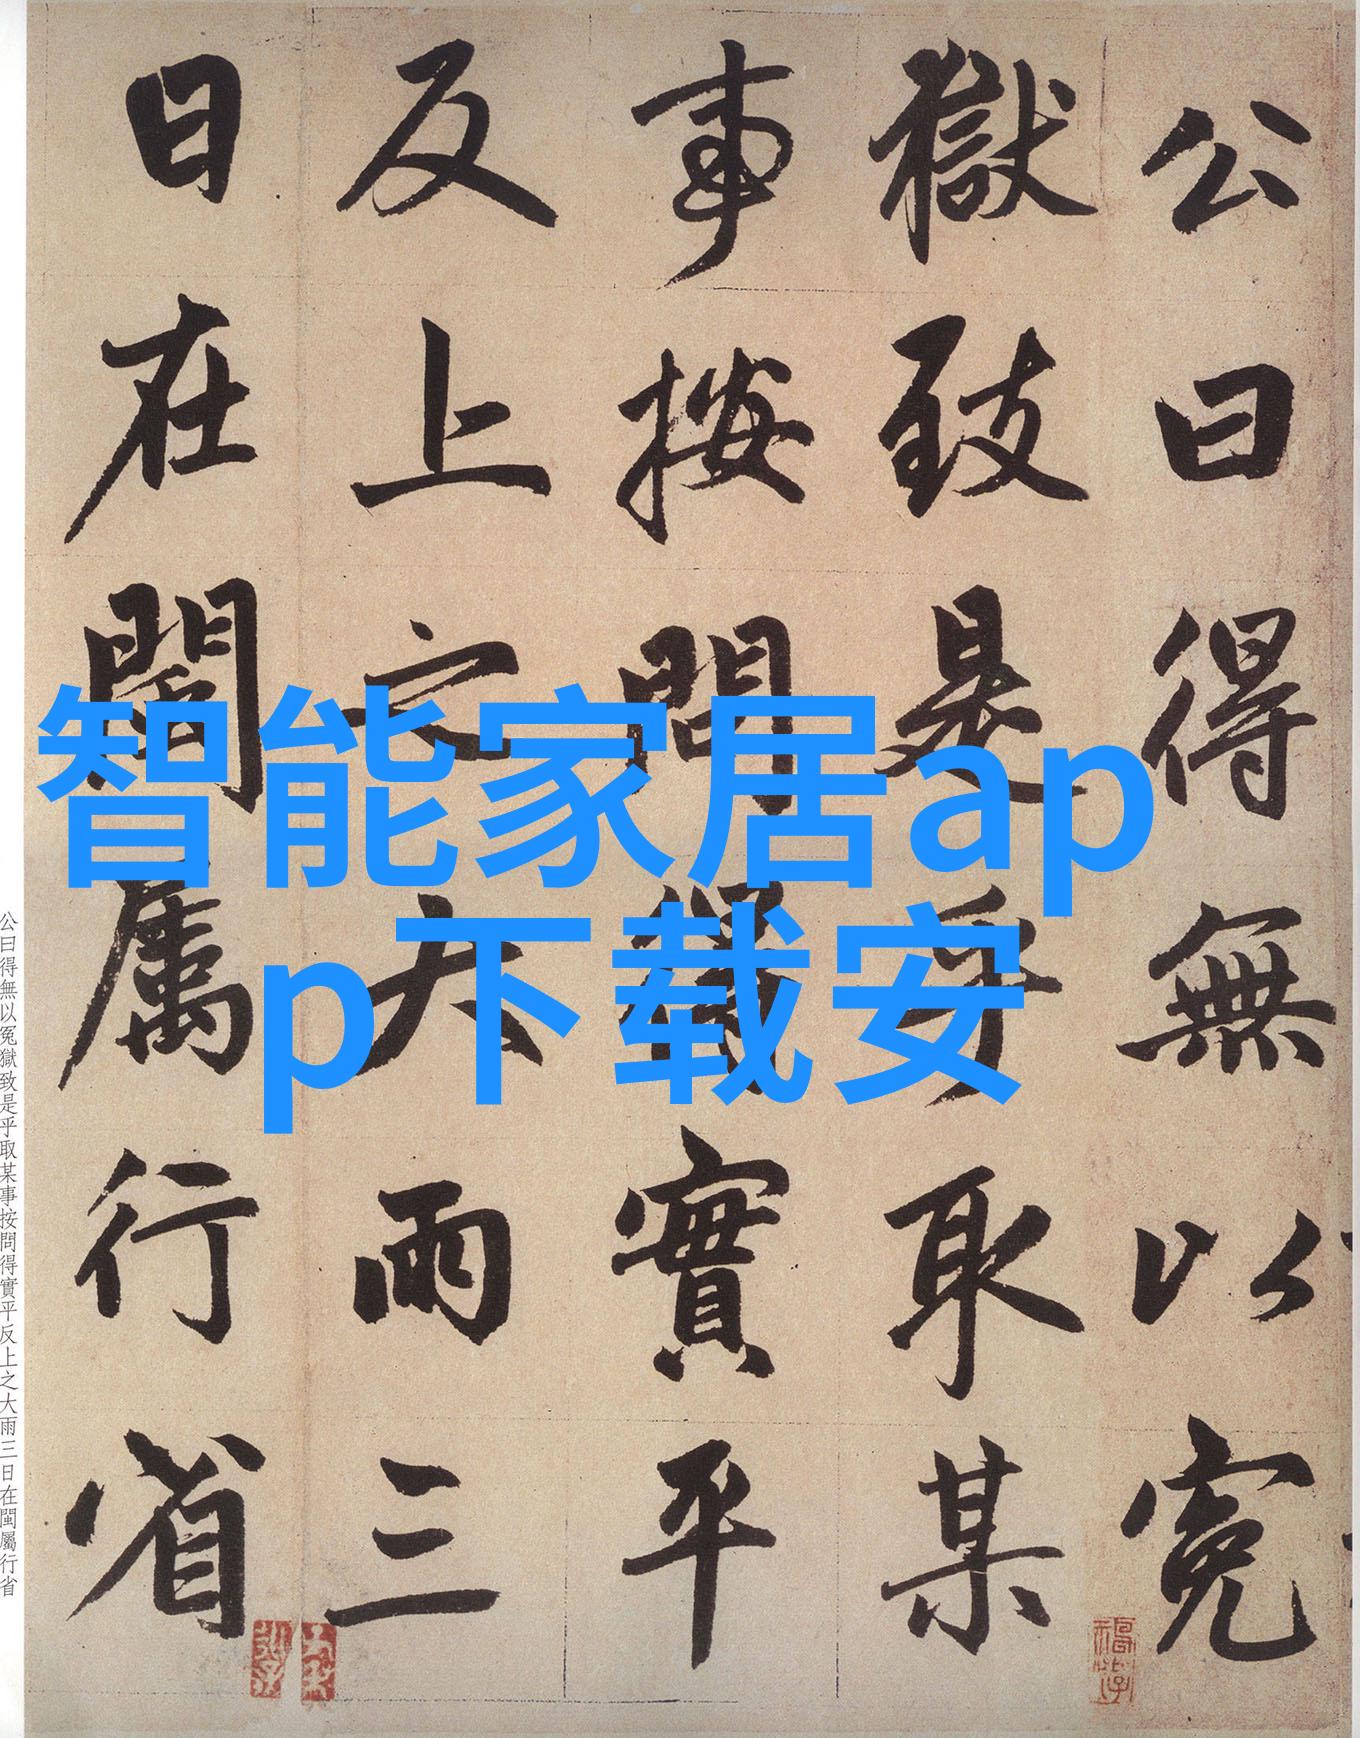 公曰得無以冤
獄致是乎取某
事按問得實平
反上之大雨三
日在閩屬行省
智能家居ap
p下载安
公曰得無以冤獄致是乎取某事按問得實平反上之大雨三日在閩屬行省